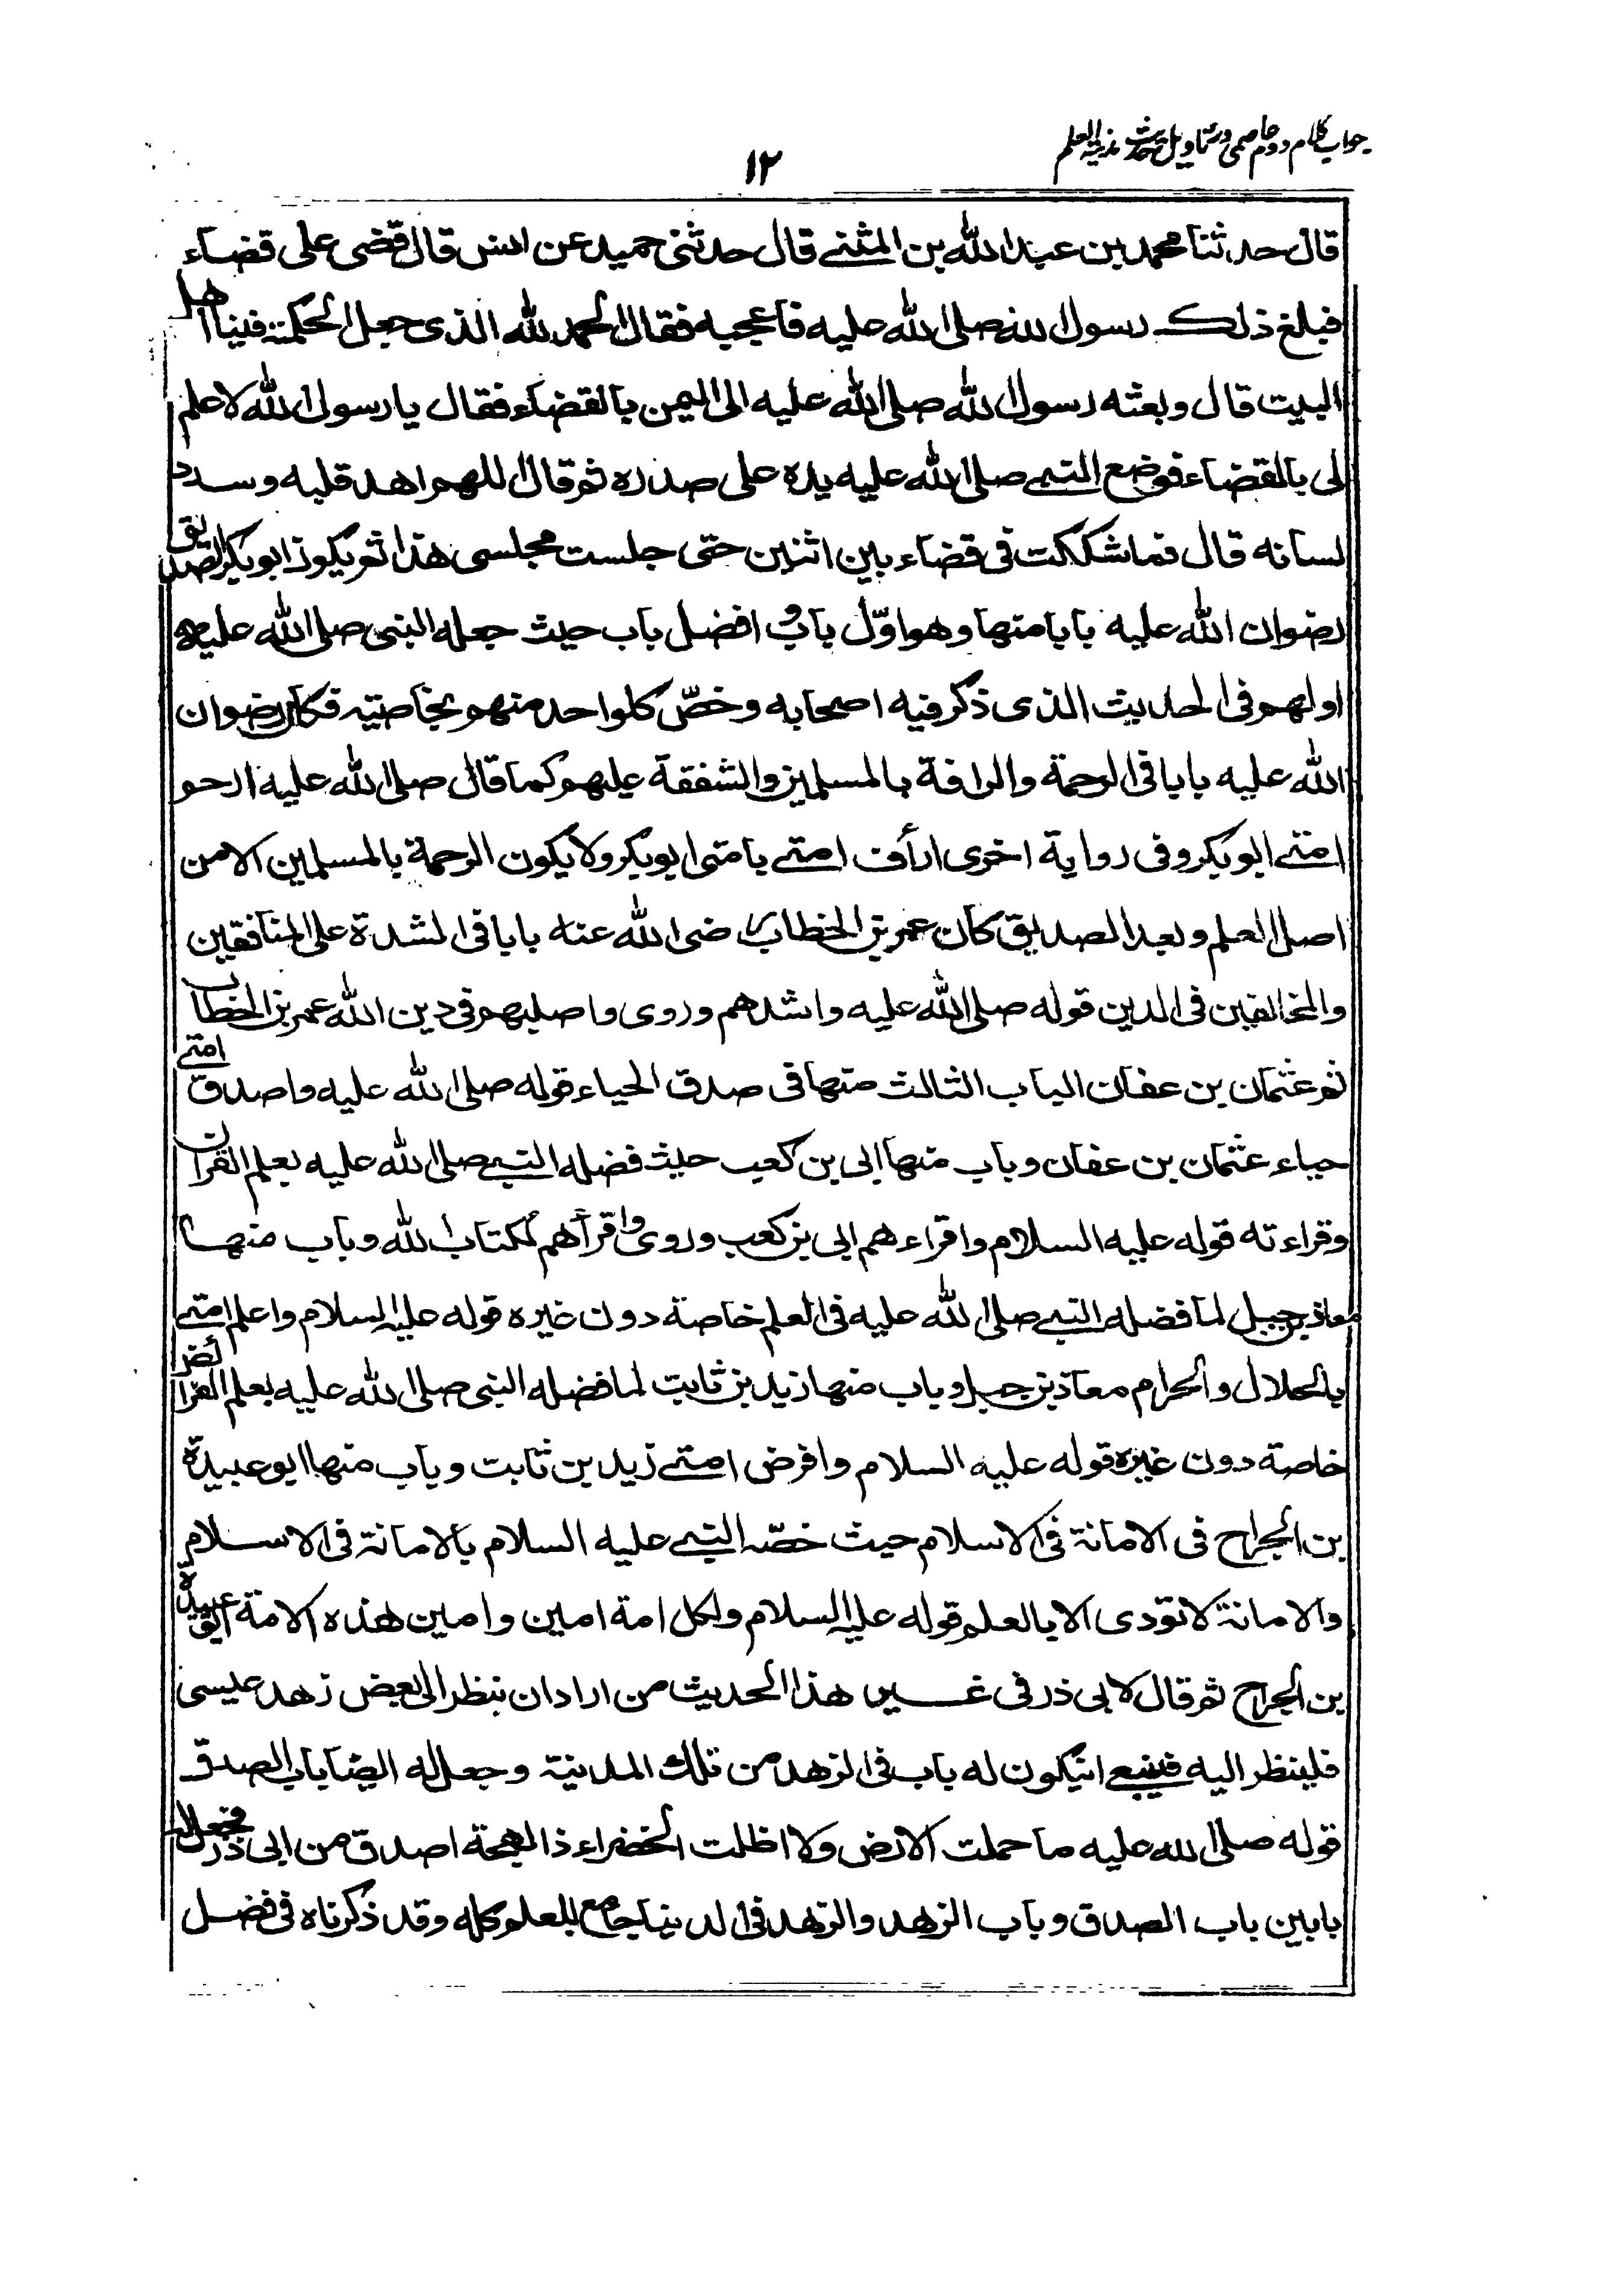 جواب کلام دوم عاصمی در تاویل حدیث مدینة العلم
۱۲
قال حدثنا محمد بن عبد الله بن المثنى قال حدثنى حميد عن انس قال قضى على قضاء
فبلغ ذلك رسول الله صلى الله عليه فاعجبه فقال الحمد لله الذى جعل الحكمة فينا اهل
البيت قال وبعثه رسول الله صلى الله عليه الى اليمن بالقضاء فقال يا رسول الله لا علم
لى بالقضاء فوضع النبى صلى الله عليه يده على صدره ثم قال اللهم اهد قلبه وسدد
لسانه قال فما شككت فى قضاء بين اثنين حتى جلست مجلسى هذا ثم يكون ابو بكر الصديق
رضوان الله عليه بابا منها وهو اوّل باب و افضل باب حيث جعله النبى صلى الله عليه
اولهم فى الحديث الذى ذكر فيه اصحابه وخصّ كلواحد منهم بخاصتيه فكان رضوان
الله عليه بابا فى الرحمة والرافة بالمسلمين والشفقة عليهم كما قال صلى الله عليه ارحم
امتى ابو بكر وفى رواية اخرى ارأف امتى بامتى ابو بكر ولا يكون الرحمة بالمسلمين الا من
اصل العلم وبعد الصديق كان عمر بن الخطاب رضى الله عنه بابا فى الشدة على المنافقين
والمخالفين فى الدين قوله صلى الله عليه واشدهم وروى واصلبهم فى دين الله عمر بن الخطاب
ثم عثمان بن عفان الباب الثالث منها فى صدق الحياء قوله صلى الله عليه واصدق امتى
حياء عثمان بن عفان وباب منها ابى بن كعب حيث فضله النبى صلى الله عليه بعلم القران
وقراءته قوله عليه السلام واقراءهم ابى بن كعب وروى واقرأهم لكتاب الله وباب منها
معاذ بن جبل لما فضله النبى صلى الله عليه فى العلم خاصة دون غيره قوله عليه السلام واعلم امتى
بالحلال والحرام معاذ بن جبل وباب منها زيد بن ثابت لما فضله النبى صلى الله عليه بعلم الفرائض
خاصة دون غيره قوله عليه السلام وافرض امتى زيد بن ثابت وباب منها ابو عبيدة
بن الجراح فى الامانة فى الاسلام حيث خصّه النبى عليه السلام بالامانة فى الاسلام
والامانة لا تؤدى الا بالعلم قوله عليه السلام ولكل امة امين وامين هذه الامة ابو عبيدة
بن الجراح ثم قال لابى ذر فى غير هذا الحديث من اراد ان ينظر الى بعض زهد عيسى
فلينظر اليه فينبغى انيكون له باب فى الزهد من تلك المدينة وجعل له ايضا باب الصدق
قوله صلى الله عليه ما حملت الارض ولا اظلت الخضراء ذا لهجة اصدق من ابى ذر فجعل له
بابين باب الصدق وباب الزهد والزهد فى الدنيا جامع للعلم كله وقد ذكرناه فى فضل